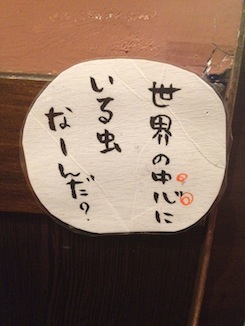 世界の中心に
いる虫
なーんだ?